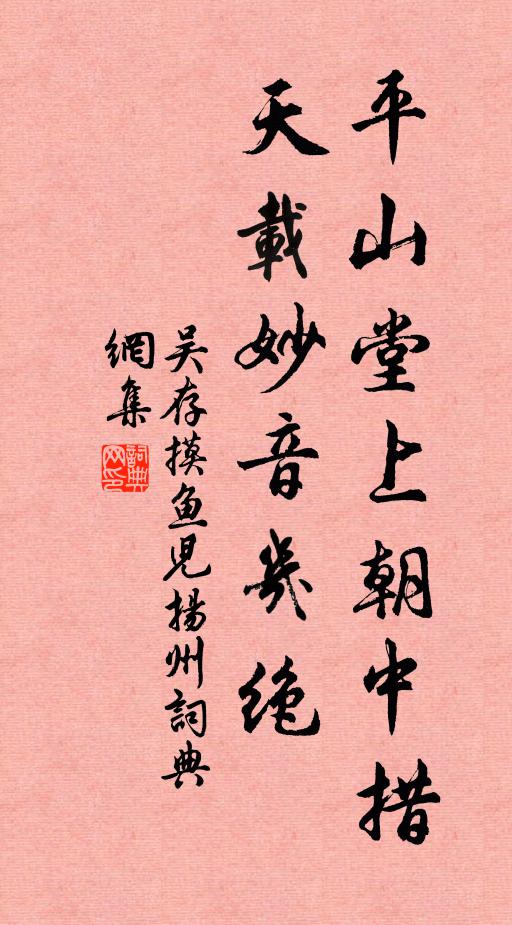 平山堂上朝中措
天載妙音幾绝
吴存摸鱼児揚州詞典
網集
詞典網印